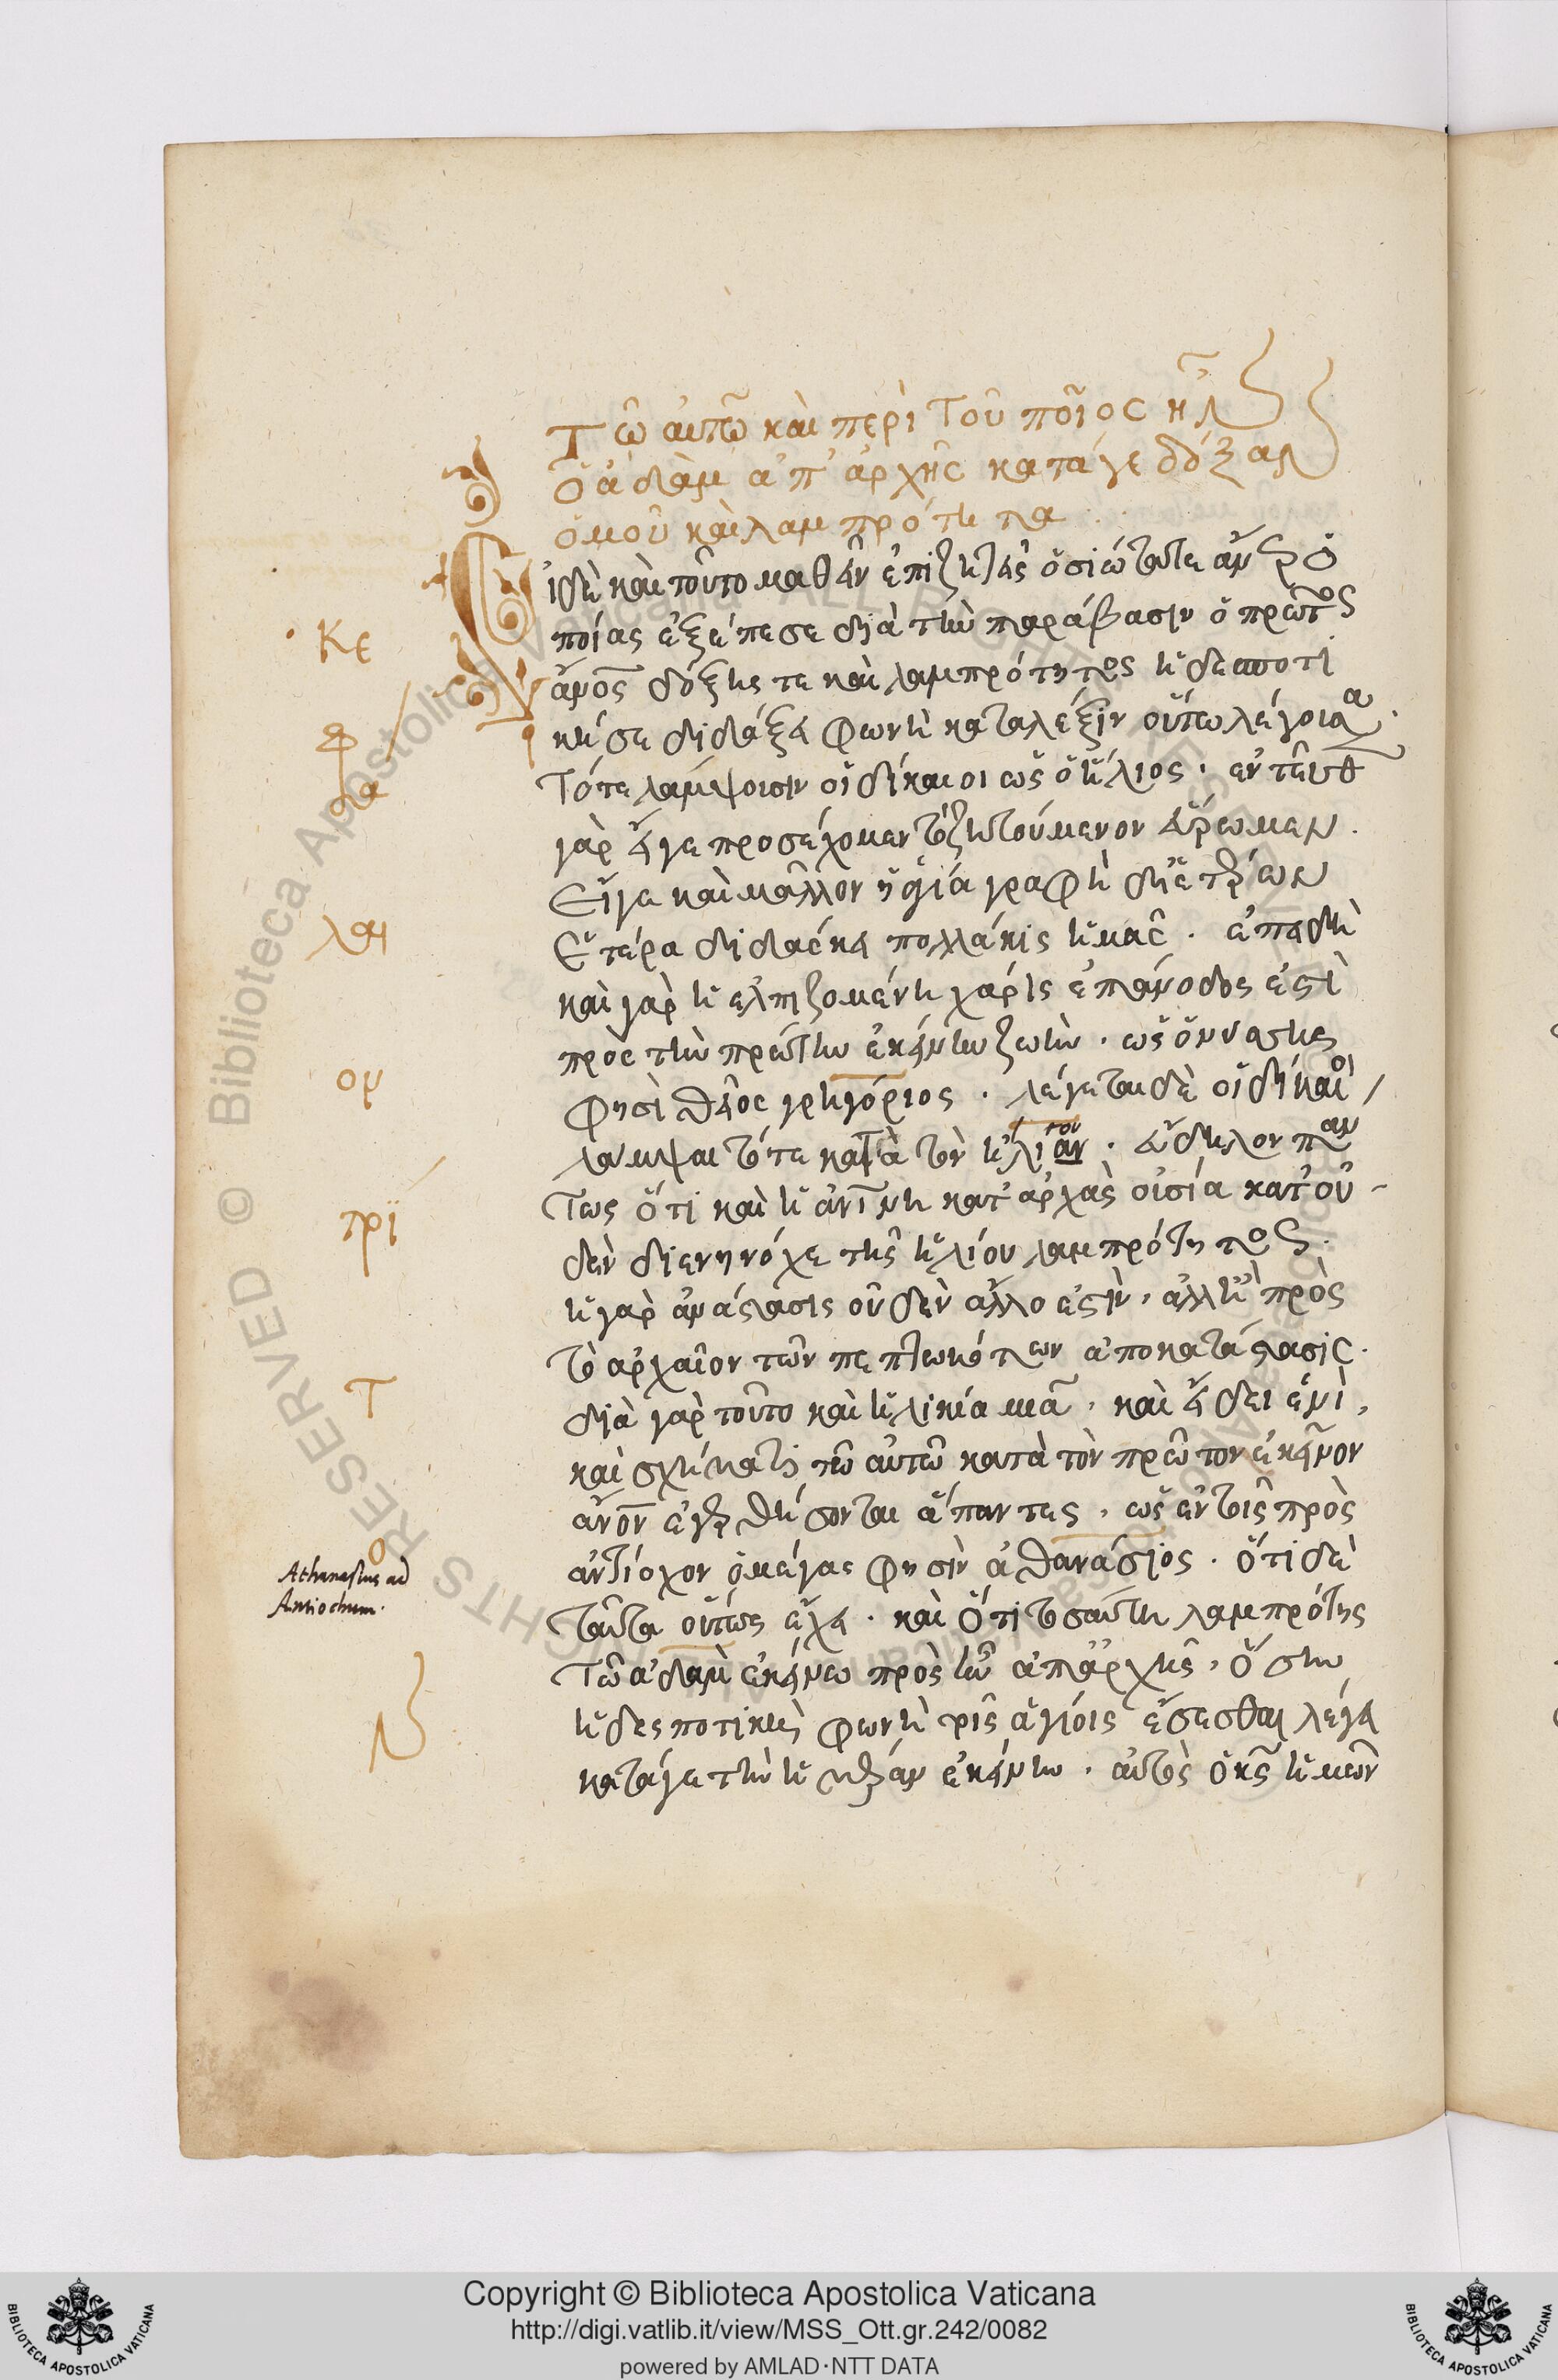 Τῶ αυτῶ καὶ περὶ τοῦ ποῖος ἦν
ὁ ἀδὰμ ἀπ' ἀρχῆς κατάγε δόξαν
ὁμοῦ καὶ λαμπρότητα
καὶ τοῦτο μαθεῖν ἐπιζητεῖς ὁσιώτατε
ποίας ἐξέπεσε διὰ τὴν παράβασιν ὁ πρῶτος
ἄνος δόξης τε καὶ λαμπρότητος ἡ δεσποτι
κή σε διδάξει φωνὴ καταλέξιν οὕτω λέγουσα.
Τότε λάμψουσιν οἱ δίκαιοι ὡς ὁ ἥλιος. ἐντεῦθ
γὰρ εἴγε προσέχομεν τὸ ζητούμενον εὕρωμεν.
Εἴγε καὶ μᾶλλον ἡ ἁγία γραφὴ
Ἑτέρα διδάσκει πολλάκις ἡμᾶς. ἐπειδὴ
καὶ γὰρ ἡ ἐλπιζομένη χάρις ἐπάνοδος ἐστὶ
πρὸς τὴν πρώτην ἐκείνην ζωὴν. ὡς ὁ νύσσης
φησὶ θεῖος γρηγόριος. λέγεται δὲ οἱ δίκαιοι
λάμψαι τότε κατὰ τὸν ἥλιον. εὔδηλον πάν
τως ὅτι καὶ ἡ κατ' ἀρχὰς οὐσία κατ' οὐ
δὲν διενηνόχε τῆς ἡλίου λαμπρότητος.
ἡ γὰρ ἀνάστασις οὐδὲν ἄλλο ἐστὶν, ἀλλ' ἢ πρὸς
τὸ ἀρχαῖον τῶν πεπτωκότων ἀποκατάστασις.
διὰ γὰρ τοῦτο καὶ ἡλικία μιᾶ, καὶ εἴδει ἑνὶ,
καὶ σχήματι τῶ αὐτῶ κατὰ τὸν πρῶτον ἐκεῖνον
ἄνον ἐγερθήσονται ἅπαντες, ὡς ἐν τοῖς πρὸς
ἀντίοχον ὁ μέγας φησὶν ἀθανάσιος. ὅτι δὲ
ταῦτα οὕτως ἔχει. καὶ ὅτι τοσαύτη λαμπρότης
τῶ ἀδὰμ ἐκείνω προσῆν ἀπαρχῆς, ὅσην
ἡ δεσποτικὴ φωνὴ τοῖς ἁγίοις ἔσεσθαι λέγει
κατάγε τὴν ἡμέραν ἐκείνην. αὐτὸς ὁ κς ἡμῶν
Κε
φα
λαι
ον
τρϊ
τ
ο
ν
Athanasius ad
Antiochum.
Copyright © Biblioteca Apostolica Vaticana
http://digi.vatlib.it/view/MSS_Ott.gr.242/0082
powered by AMLAD·NTT DATA